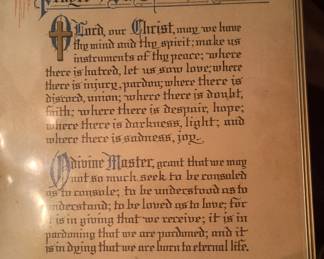 Prayer
O Lord, our Christ, may we have
thy mind and thy spirit; make us
instruments of thy peace; where
there is hatred, let us sow love; where
there is injury, pardon; where there is
discord, union; where there is doubt,
faith; where there is despair, hope;
where there is darkness, light; and
where there is sadness, joy.
O divine Master, grant that we may
not so much seek to be consoled
as to console; to be understood as to
understand; to be loved as to love; for
it is in giving that we receive; it is in
pardoning that we are pardoned; and it
is in dying that we are born to eternal life.